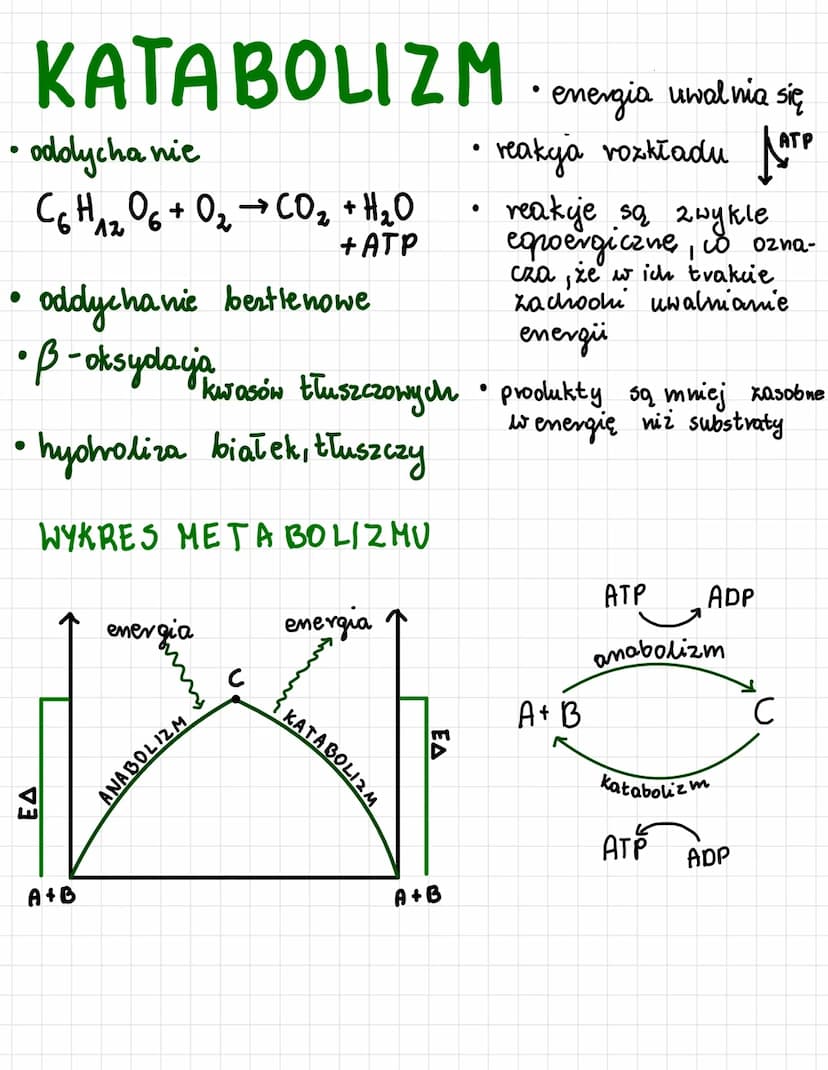 KATABOLIZM
• oddychanie
C₆H₁₂O₆ + O₂ → CO₂ + H₂O
+ ATP
• oddychanie beztlenowe
• β-oksydacja
kwasów tłuszczowych
• hydroliza białek, tłuszczy
• energia uwalnia się
• reakcja rozkładu ATP
• reakcje są zwykle
egzoergiczne, co ozna-
cza, że w ich trakcie
zachodzi uwalnianie
energii
• produkty są mniej zasobne
w energię niż substraty
WYKRES METABOLIZMU
energia
energia
C
ANABOLIZM
KATABOLIZM
EΔ
EΔ
A+B
A+B
ATP ADP
anabolizm
A+B C
katabolizm
ATP ADP